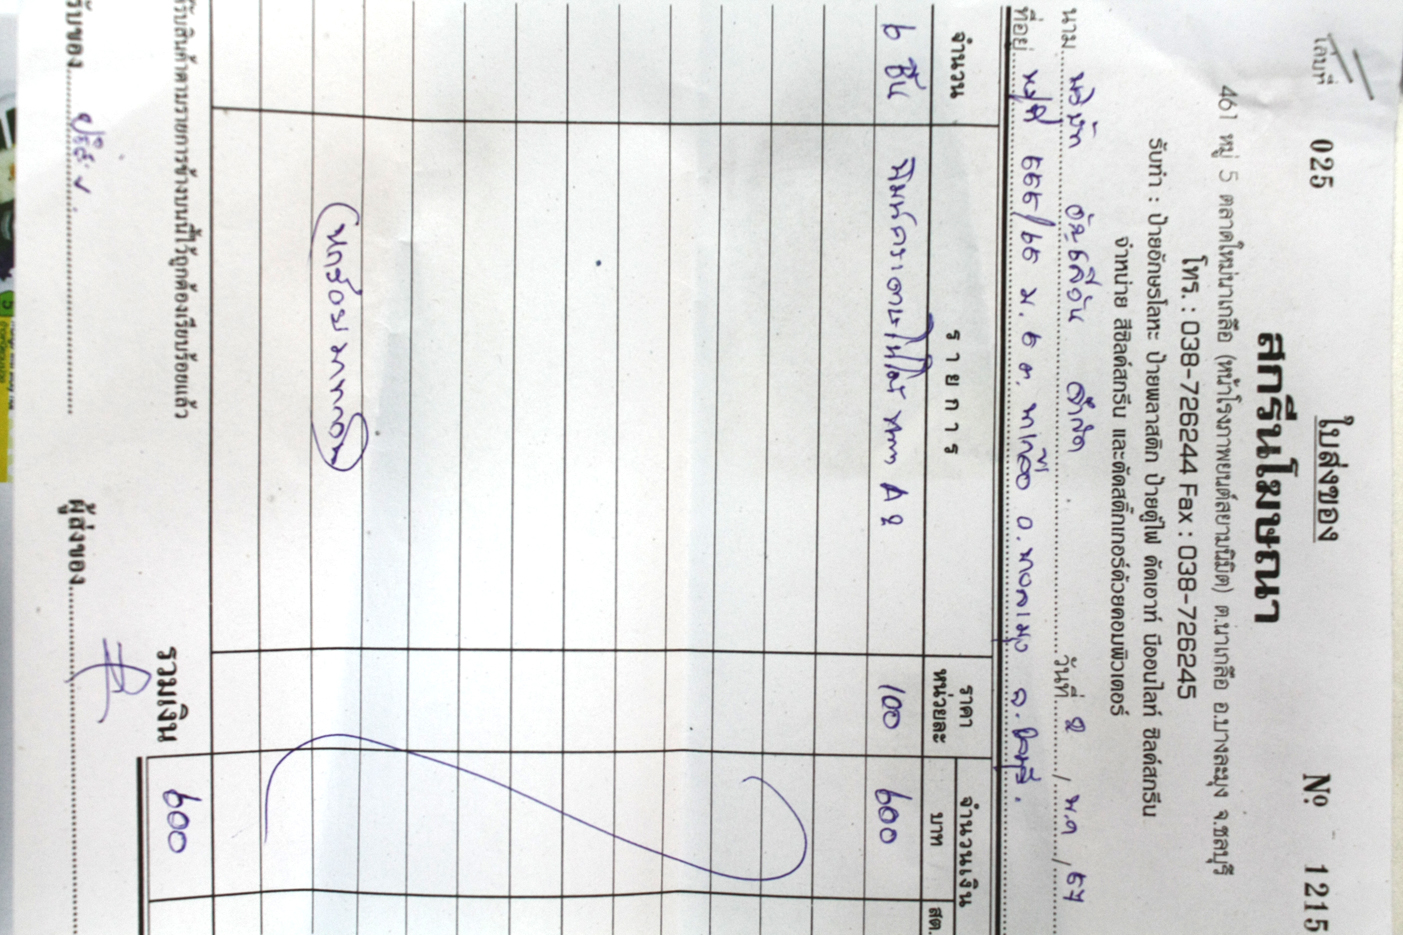 เล่มที่ 025
ใบส่งของ
Nº 1215
สกรีนโฆษณา
461 หมู่ 5 ตลาดใหม่นาเกลือ (หน้าโรงภาพยนต์สยามนิมิต) ต.นาเกลือ อ.บางละมุง จ.ชลบุรี
โทร. : 038-726244 Fax : 038-726245
รับทำ : ป้ายอักษรโลหะ ป้ายพลาสติก ป้ายตู้ไฟ คัดเอาท์ นีออนไลท์ ซิลค์สกรีน
จำหน่าย สีซิลค์สกรีน และตัดสติ๊กเกอร์ด้วยคอมพิวเตอร์
นาม บริษัท จำกัด วันที่ 2 / พ.ค / 57
ที่อยู่ 555/65 ม. 5 ต. นาเกลือ อ. บางละมุง จ. ชลบุรี.
จำนวน รายการ ราคาหน่วยละ จำนวนเงิน
บาท สต.
6 ชิ้น A2 100 600
รวมเงิน 600
ได้รับสินค้าตามรายการข้างบนนี้ไว้ถูกต้องเรียบร้อยแล้ว
ผู้รับของ ผู้ส่งของ